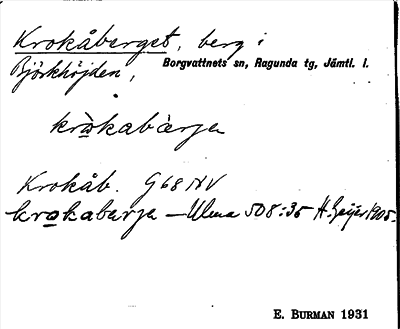 Krokåberget, berg i
Björkhöjden, Borgvattnets sn, Ragunda tg, Jämtl. l.
kròkabàrjen
Krokåb. G 68 NV
krokabarja — Ulma 508:35 H. Geijer 1905.
E. BURMAN 1931